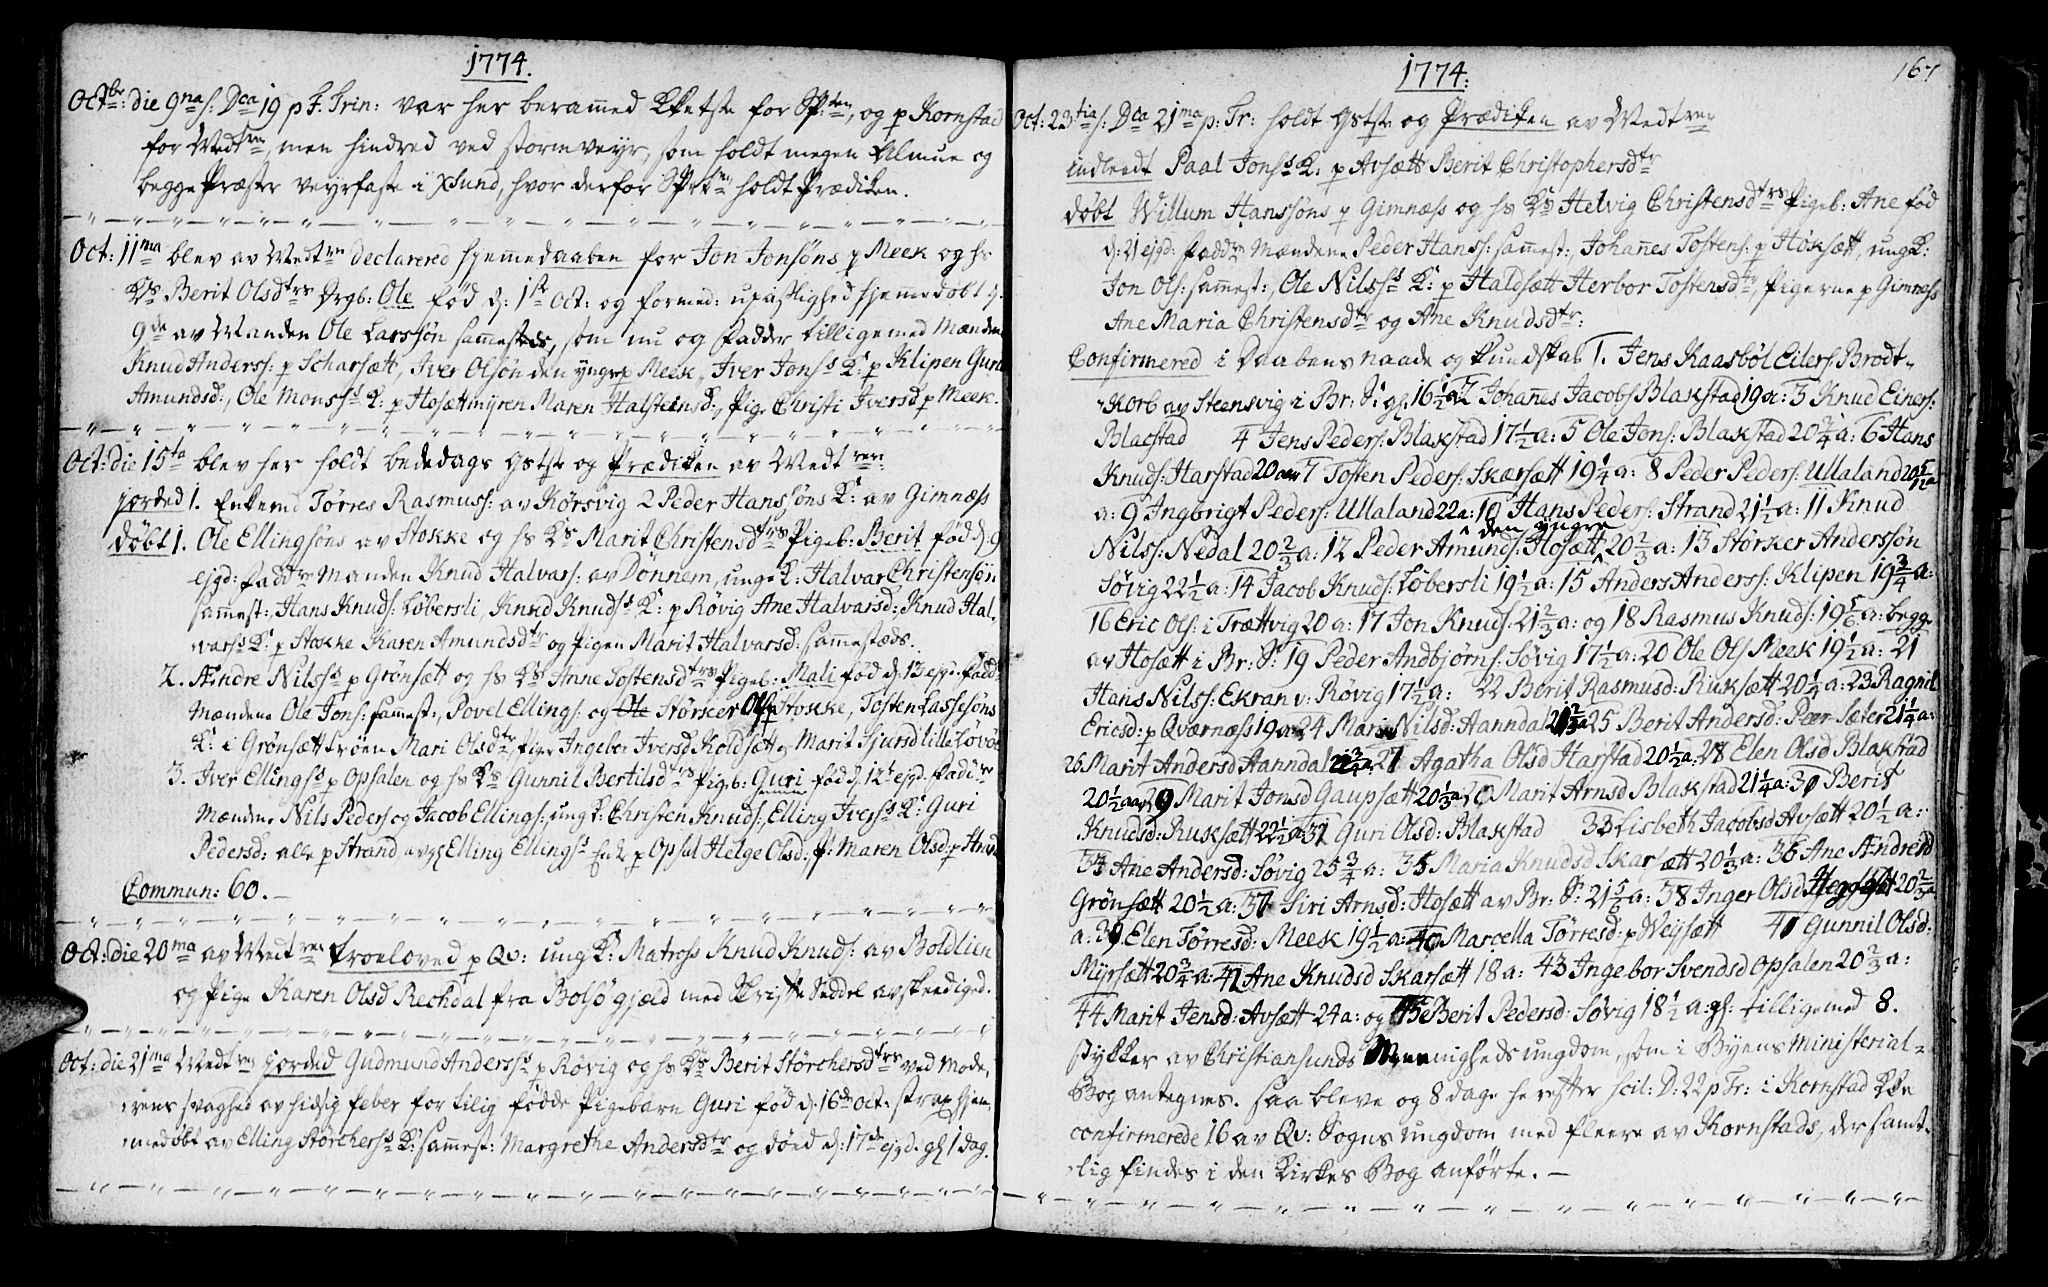 1774.
Octbr: die 9na s: Dca 19 p F. Trin: var her beramed Kketste for SP:ten, og p Kornstad
for Medtren, men hindred ved stormveyr, som holdt megen Almue og
begge Præster veyrfaste i Xsund, hvor derfor SPrten holdt Prædiken.
Oct: 11ma blev av Medtren declarered hjemmedaaben for Jon Jonsøns p Meek og hs
Ks Berit Olsdtrs Drgb: Ole fød d: 1ste Oct: og formed: upaslighed hjemmedøbt d.
9de av Manden Ole Larssøn sammesteds, som nu og fadder tilligemed Mændene
Knud Anderss: p Scharsætt, Iver Olsøn den yngre p Meek, Iver Jonss K: p Klipen Guru
Amundsd:, Ole Monss K: p Hosættmyren Maren Halsteinsd:, Pige Christi Iversd p Meek.
Oct: die 15ta blev her holdt bededags Gstste og Prædiken av Medtren:
jorded 1. Enkemd Tørres Rasmuss: av Kørsvig 2 Peder Hanssøns K: av Gimness
døbt 1. Ole Ellingsøns av Stokke og hs Ks Marit Christensdtrs Pigeb: Berit fød d: 9
ejgd: fadd: Manden Knud Halvars: av Dønnem, unge K: Halvar Christensøn
samest:, Hans Knuds: Løbersli, Knud Knuds K: p Røvig Ane Halvarsd:, Knud Hal-
vars K: p Stokke Karen Amundsdtr og Pigen Marit Halvarsd: sammesteds.
2. Ændre Nilss p Grønsætt og hs Ks Anne Tostensdtrs Pigeb: Mali fød d: 13 ejgd: fadd:
Mændene Ole Jons: samest:, Povel Ellings: og Ole Størker Ols p Stokke, Tosten Lassesøns
K: i Grønsættrøen Mari Olsdtr, Pige Ingebor Iversd Koldsætt og Marit Sjursd lille Løvøe
3. Iver Ellings p Opsalen og hs Ks Gunnil Bertilsdtrs Pigeb: Guri fød d: 12t ejgd. fadd:
Mændene Nils Peders og Jacob Ellings: ungk: Christen Knuds:, Elling Iverss K: Guri
Pedersd: alle p Strand, Elling Ellings p Opsal Helge Olsd: P: Maren Olsd: p
Commun: 60.
Oct: die 20ma av Medtren troeloved p Qv: ung K: Matross Knud Knuds: av Boldlien
og Pige Karen Olsd Rechdal fra Bolsø gjæld med Skriftl Seddel avskeediged.
Oct: die 21ma Medtren jorded Gudmund Anderss p Røvig og hs Ks Berit Størchersdtrs ved Mode-
rens svaghed av hidsig feber for tilig fødde Pigebarn Guri fød d: 16de Oct. strax hjem-
medøbt av Elling Størchers K: samest: Margrethe Andersdtr og døed d: 17de ejgd. gl 1 dag.
1774:
167
Oct: 23tia s: Dca 21ma p: Tr: holdt Gstste og Prædiken av Medtren
indleedt Paal Jonss K: p Avsætt Berit Christophersdtr
døbt Willum Hanssøns p Gimness og hs Ks Helvig Christensdtrs Pigeb: Ane fød
d: 21 ejgd: fadd: Mændene Peder Hans: samest:, Johanes Tostens: p Høksætt, ungk:
Jon Ols: samest:, Ole Nilss K: p Haldsætt Herbor Tostensdtr, Pigerne p Gimness
Ane Maria Christensdtr og Ane Knudsdtr:
Confirmered i Daabens naade og kundskab 1. Jens Kaasbøl Eilers: Brodt-
korb av Steensvig i Br: S: gl. 16 1/2 a: 2 Johanes Jacobs Blakstad 19 a: 3 Knud Einers:
Blacstad 4 Jens Peders: Blakstad 17 1/2 a: 5 Ole Jons: Blakstad 20 3/4 a: 6 Hans
Knuds: Harstad 20 aar 7 Tosten Peders: Skærsætt 19 1/4 a: 8 Peder Peders: Ullaland 20 5/12
a: 9 Ingbrigt Peders: Ullaland 22 a: 10 Hans Peders: Strand 21 1/2 a: 11 Knud
Nilss: Nedal 20 2/3 a: 12 Peder Amunds: den yngre Hosætt 20 2/3 a: 13 Størker Anderssøn
Søvig 22 1/2 a: 14 Jacob Knuds: Løbersli 19 1/2 a: 15 Anders Anderss: Klipen 19 3/4 a:
16 Eric Ols: i Trættvig 20 a: 17 Jon Knuds: 21 2/3 a: og 18 Rasmus Knuds: 19 5/6 a: begge
av Hosætt i Br: S: 19 Peder Andbjørns: Søvig 17 1/2 a: 20 Ole Ols Meek 19 1/2 a: 21
Hans Nilss: Ekran v: Røvig 17 1/2 a: 22 Berit Rasmusd: Ruksætt 20 1/4 a: 23 Ragnil
Ericsd: p Qværness 19 a: 24 Mari Nilsd: Hanndal 21 2/3 a 25 Berit Andersd: Peer Sæter 21 1/4 a:
26 Marit Andersd Hanndal 3/4 a: 27 Agatha Olsd Harstad 20 1/2 a: 28 Elen Olsd Blakstad
20 1/2 aar 29 Marit Jonsd Gaupsætt 20 1/3 a: 30 Marit Arnsd Blakstad 21 1/4 a: 31 Berit
Knudsd: Ruksætt 22 1/2 a: 32 Guri Olsd: Blakstad 33 Lisbeth Jacobsd Avsætt 20 1/2 a:
34 Ane Andersd: Søvig 25 3/4 a: 35 Maria Knudsd Skarsætt 20 1/3 a: 36 Ane Ændresd
Grønsætt 20 1/2 a: 37 Siri Arnsd: Hosætt av Br: S: 21 5/6 a: 38 Inger Olsd 20 2/3
a: 39 Elen Tørresd: Meek 19 1/2 a: 40 Marcella Tørresd: p Weysætt 41 Gunnil Olsd:
Myrsætt 20 3/4 a: 42 Ane Knudsd Skarsætt 18 a: 43 Ingebor Svendsd Opsalen 20 2/3 a:
44 Marit Jensd: Avsætt 24 a: og 45 Berit Pedersd: Søvig 18 1/2 a: gl: tilligemed 8.
stykker av Christiansunds Meenigheds ungdom, som i Byens Ministerial-
Bog antegnes. saa bleve og 8 dage herefter scil: D: 22 p Tr: i Kornstad Kke
confirmerede 16 av Qv: Sogns ungdom med fleere av Kornstads, der samt-
lig findes i den Kirkes Bog anførte.